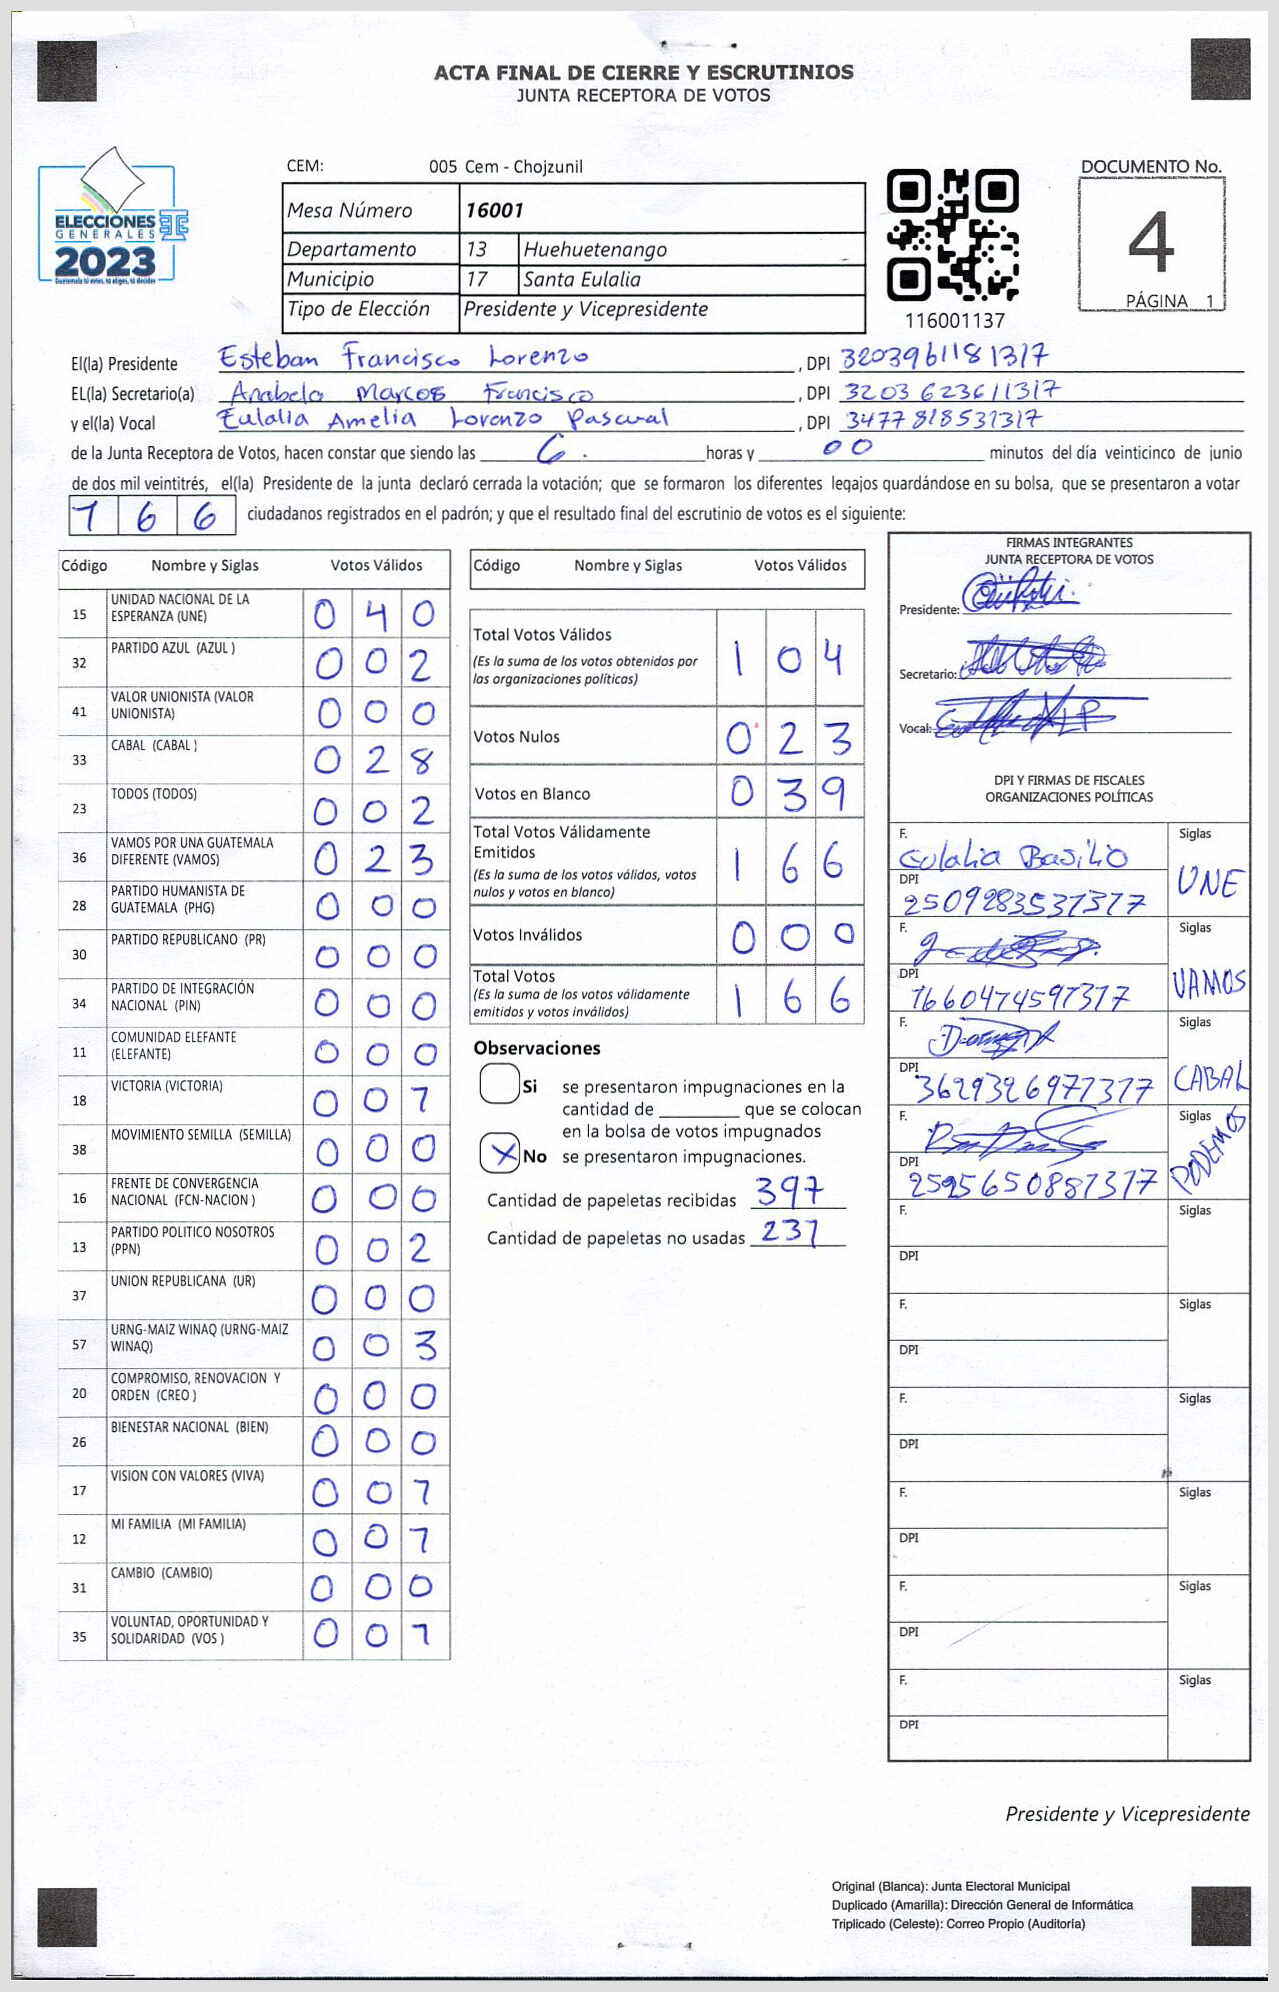 ACTA FINAL DE CIERRE Y ESCRUTINIOS
JUNTA RECEPTORA DE VOTOS
ELECCIONES
GENERALES
2023
Guatemala tú eres, tú eliges, tú decides
CEM: 005 Cem - Chojzunil
Mesa Número 16001
Departamento 13 Huehuetenango
Municipio 17 Santa Eulalia
Tipo de Elección Presidente y Vicepresidente
116001137
DOCUMENTO No.
4
PÁGINA 1
El(la) Presidente Esteban Francisco Lorenzo, DPI 3203961181317
EL(la) Secretario(a) Anabela Marcos Francisco, DPI 3203 623611317
y el(la) Vocal Eulalia Amelia Lorenzo Pascual, DPI 3477 818531317
de la Junta Receptora de Votos, hacen constar que siendo las 6. horas y 00 minutos del día veinticinco de junio
de dos mil veintitrés, el(la) Presidente de la junta declaró cerrada la votación; que se formaron los diferentes legajos guardándose en su bolsa, que se presentaron a votar
166 ciudadanos registrados en el padrón; y que el resultado final del escrutinio de votos es el siguiente:
Código Nombre y Siglas Votos Válidos
15 UNIDAD NACIONAL DE LA ESPERANZA (UNE) 0 4 0
32 PARTIDO AZUL (AZUL ) 0 0 2
41 VALOR UNIONISTA (VALOR UNIONISTA) 0 0 0
33 CABAL (CABAL ) 0 2 8
23 TODOS (TODOS) 0 0 2
36 VAMOS POR UNA GUATEMALA DIFERENTE (VAMOS) 0 2 3
28 PARTIDO HUMANISTA DE GUATEMALA (PHG) 0 0 0
30 PARTIDO REPUBLICANO (PR) 0 0 0
34 PARTIDO DE INTEGRACIÓN NACIONAL (PIN) 0 0 0
11 COMUNIDAD ELEFANTE (ELEFANTE) 0 0 0
18 VICTORIA (VICTORIA) 0 0 1
38 MOVIMIENTO SEMILLA (SEMILLA) 0 0 0
16 FRENTE DE CONVERGENCIA NACIONAL (FCN-NACION ) 0 0 0
13 PARTIDO POLITICO NOSOTROS (PPN) 0 0 2
37 UNION REPUBLICANA (UR) 0 0 0
57 URNG-MAIZ WINAQ (URNG-MAIZ WINAQ) 0 0 3
20 COMPROMISO, RENOVACION Y ORDEN (CREO ) 0 0 0
26 BIENESTAR NACIONAL (BIEN) 0 0 0
17 VISION CON VALORES (VIVA) 0 0 1
12 MI FAMILIA (MI FAMILIA) 0 0 1
31 CAMBIO (CAMBIO) 0 0 0
35 VOLUNTAD, OPORTUNIDAD Y SOLIDARIDAD (VOS ) 0 0 1
Código Nombre y Siglas Votos Válidos
Total Votos Válidos 1 0 4
(Es la suma de los votos obtenidos por
las organizaciones políticas)
Votos Nulos 0 2 3
Votos en Blanco 0 3 9
Total Votos Válidamente
Emitidos 1 6 6
(Es la suma de los votos válidos, votos
nulos y votos en blanco)
Votos Inválidos 0 0 0
Total Votos 1 6 6
(Es la suma de los votos válidamente
emitidos y votos inválidos)
Observaciones
Si se presentaron impugnaciones en la
cantidad de ________ que se colocan
en la bolsa de votos impugnados
X No se presentaron impugnaciones.
Cantidad de papeletas recibidas 397
Cantidad de papeletas no usadas 231
FIRMAS INTEGRANTES
JUNTA RECEPTORA DE VOTOS
Presidente:
Secretario:
Vocal:
DPI Y FIRMAS DE FISCALES
ORGANIZACIONES POLÍTICAS
F. Eulalia Basilio Siglas UNE
DPI 2509283531317
F. Siglas VAMOS
DPI 1660474591317
F. Siglas CABAL
DPI 3629326971317
F. Siglas PODEMOS
DPI 2595650881317
F. Siglas
DPI
F. Siglas
DPI
F. Siglas
DPI
F. Siglas
DPI
F. Siglas
DPI
F. Siglas
DPI
Presidente y Vicepresidente
Original (Blanca): Junta Electoral Municipal
Duplicado (Amarilla): Dirección General de Informática
Triplicado (Celeste): Correo Propio (Auditoría)